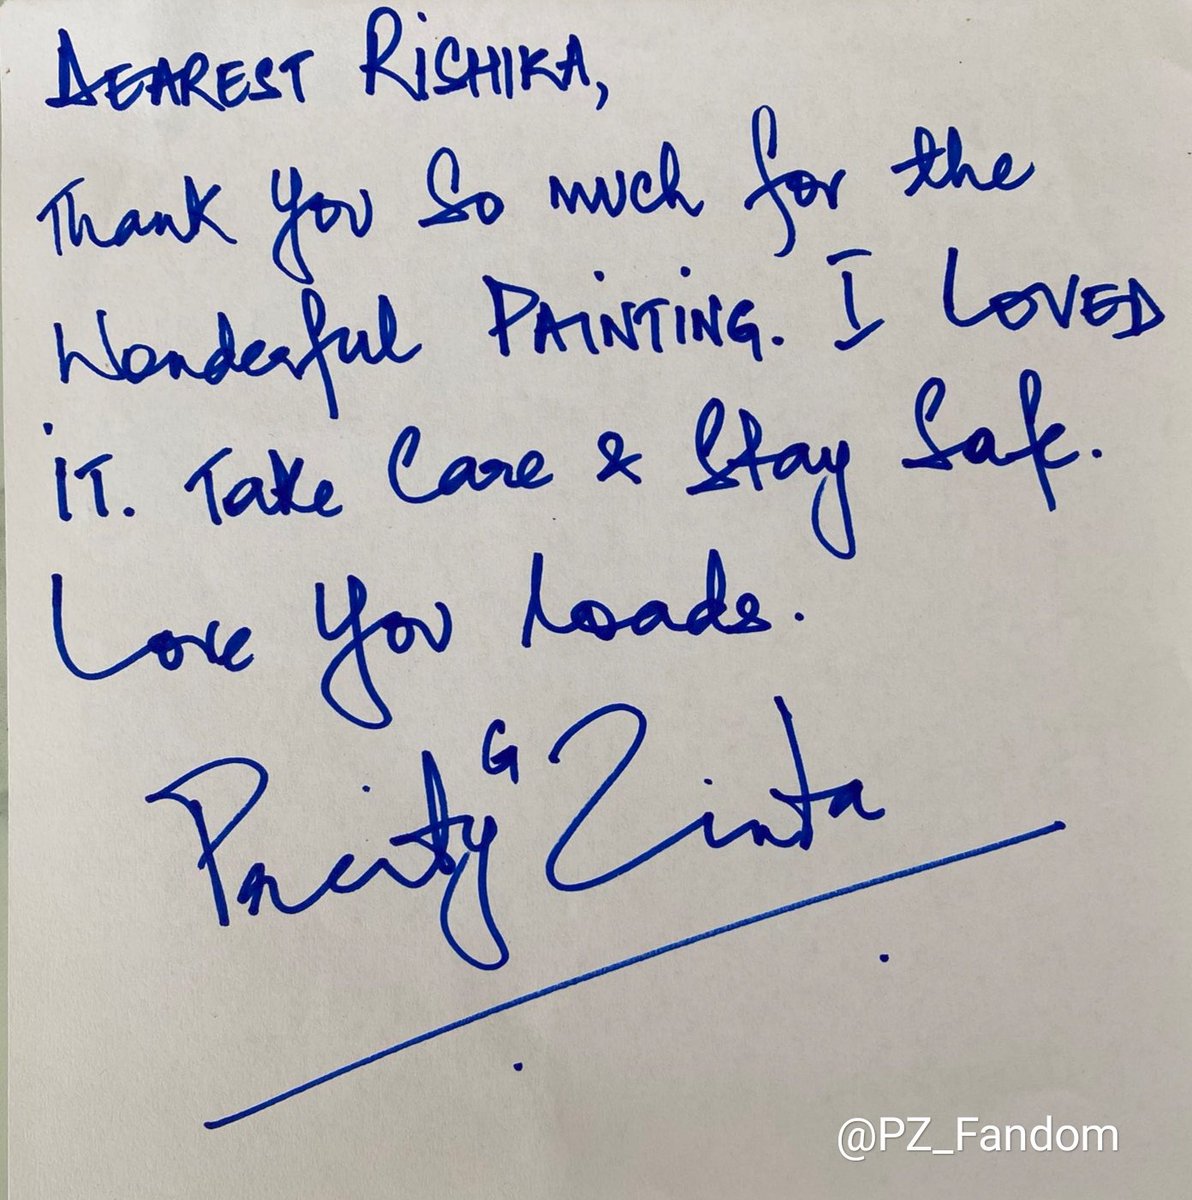 DEAREST RiSHiKA,
Thank You So much for the
Wonderful PAiNTiNG. I LOVED
iT. Take Care & Stay Safe.
Love You Loads.
Preity G Zinta
@PZ_Fandom